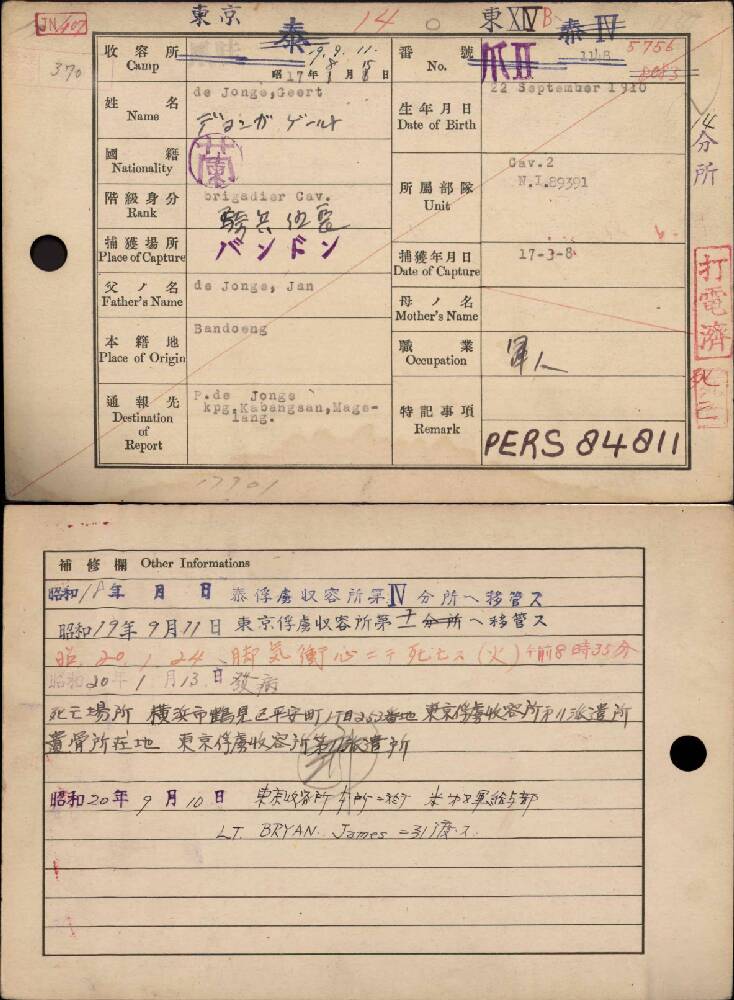 JN/407
東京
泰
14
東XIVB
泰IV
370
収容所
Camp
19.9.11.
8 15
昭17年 月 日
番號
No.
爪II
1148
5756
8083
姓名
Name
de Jonge,Geert
デヨンガ ゲールト
生年月日
Date of Birth
22 September 1910
國籍
Nationality
蘭
階級身分
Rank
brigadier Cav.
騎兵伍長
所屬部隊
Unit
Cav.2
N.I.89391
14
分所
捕獲場所
Place of Capture
バンドン
捕獲年月日
Date of Capture
17-3-8
父ノ名
Father's Name
de Jonge, Jan
母ノ名
Mother's Name
打電濟
死亡
本籍地
Place of Origin
Bandoeng
職業
Occupation
軍人
通報先
Destination
of
Report
P.de Jonge
kpg.Kabangsan,Mage-
lang.
特記事項
Remark
PERS 84811
17701
補修欄 Other Informations
昭和18年 月 日 泰俘虜収容所第IV分所ヘ移管ス
昭和19年9月11日 東京俘虜収容所第十一分所ヘ移管ス
昭.20.1.24、脚気衝心ニテ死亡ス(火)午前8時35分
昭和20年1月13日發病
死亡場所 横浜市鶴見区平安町1丁目252番地 東京俘虜收容所第11派遣所
遺骨所在地 東京俘虜收容所第11派遣所
昭和20年9月10日 東京收容所本所ニ於テ
LT. BRYAN. James ニ引渡ス.